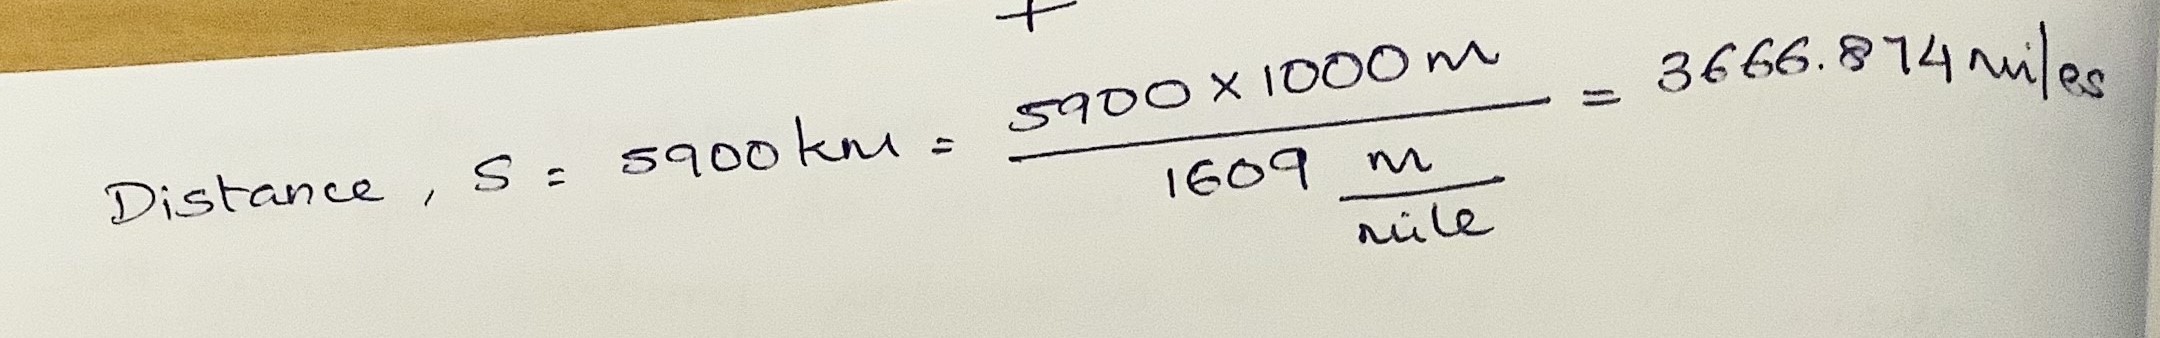 Distance, S = 5900 km = 5900 × 1000 m / 1609 m/mile = 3666.874 miles